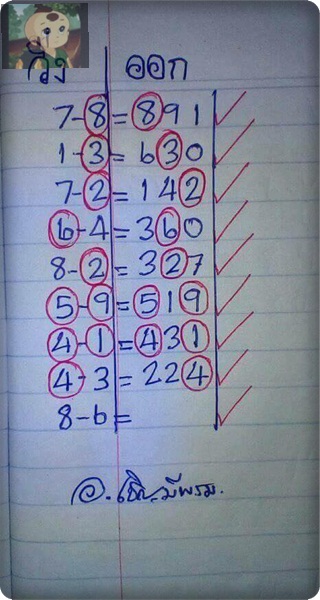 วิ่ง ออก
7-8 = 891
1-3 = 630
7-2 = 142
6-4 = 360
8-2 = 327
5-9 = 519
4-1 = 431
4-3 = 224
8-6 =
อ.